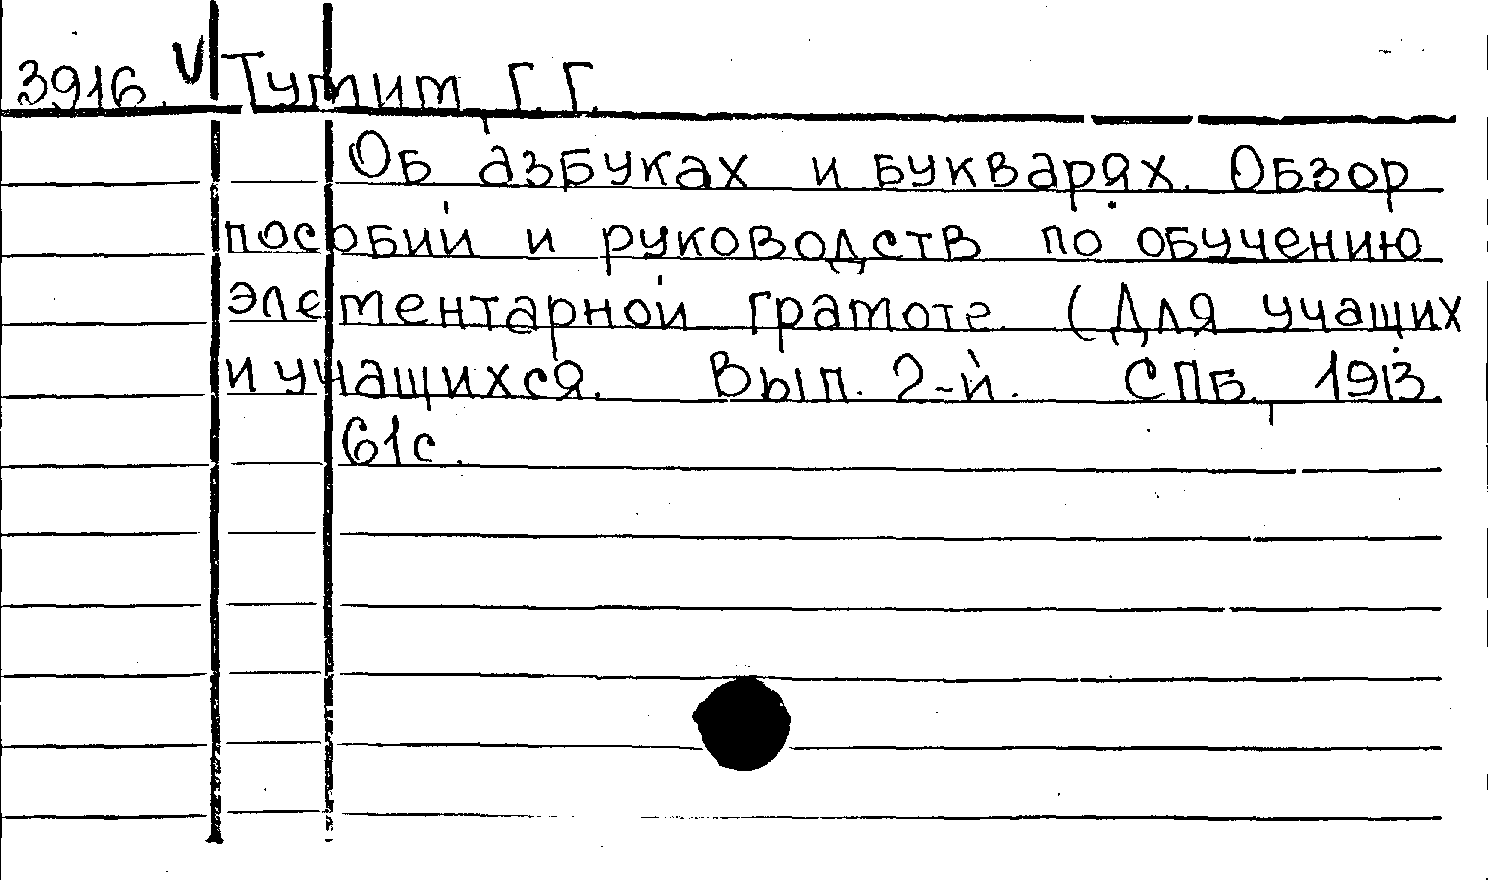 3916. V Тумим, Г. Г.
Об азбуках и букварях. Обзор
пособий и руководств по обучению
элементарной грамоте (Для учащих
и учащихся. Вып. 2-й. СПБ., 1913.
61с.